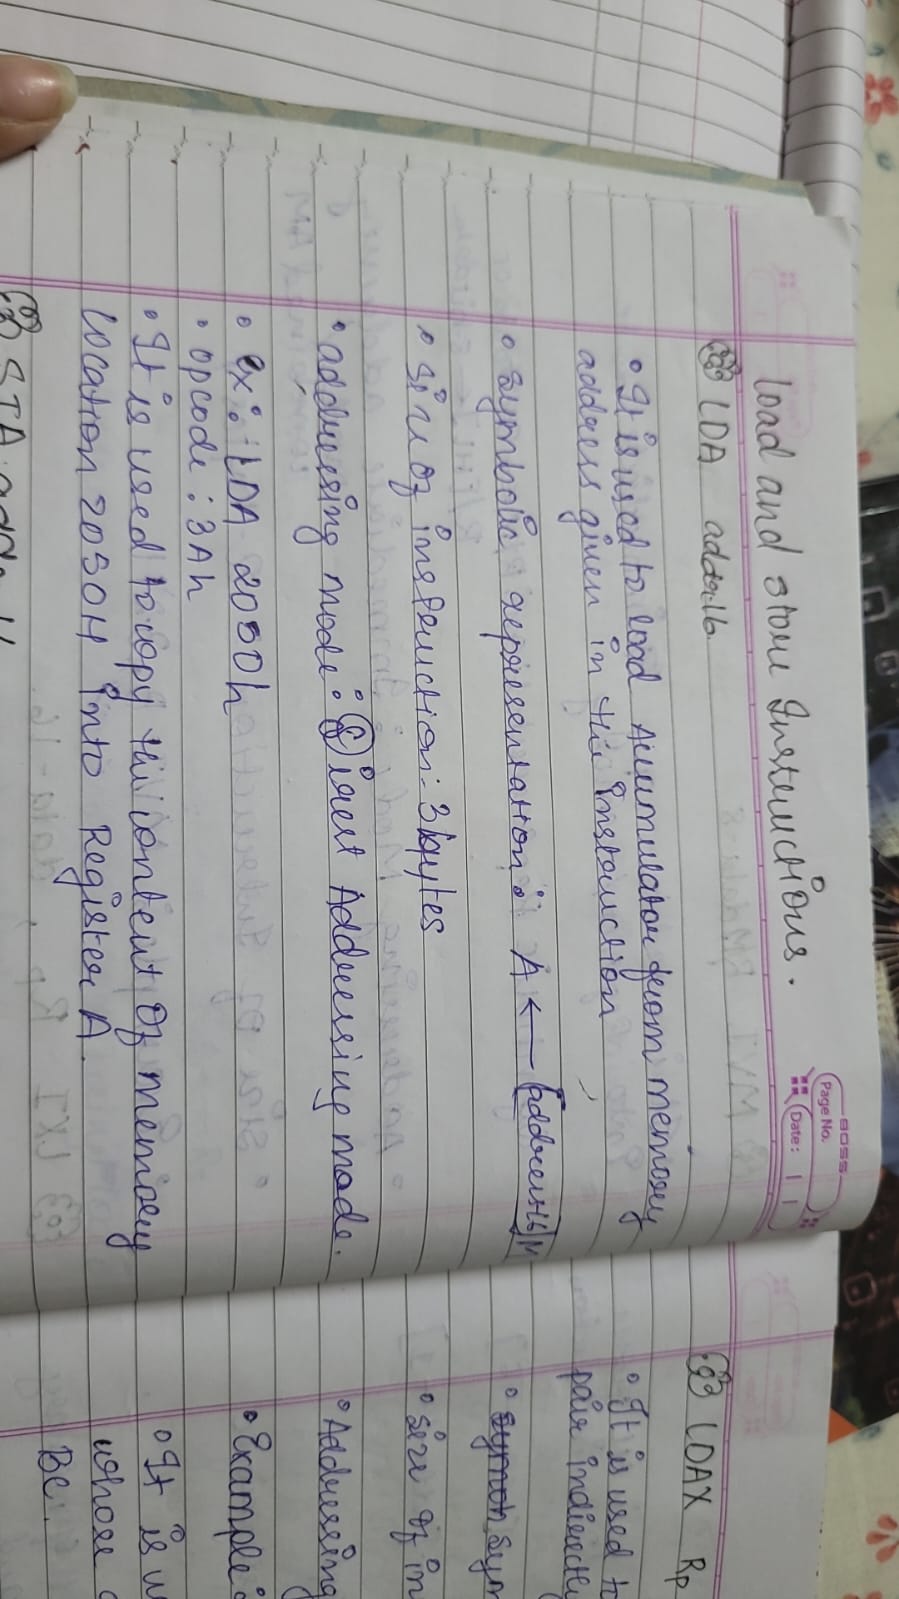 BOSS
Page No.
Date: / /
load and store Instructions.
LDA addr16
• It is used to load Accumulator from memory
address given in the Instruction
• symbolic representation: A ← [address16]M
• size of instruction: 3 bytes
• addressing mode: Direct Addressing mode.
• ex: LDA 2050h
• opcode: 3Ah
• It is used to copy the content of memory
location 2050H into Register A.
STA addr
LDAX Rp
• It is used to
pair indirectly
• symon sym
• size of in
• Addressing
• Example:
• It is u
whose
BC.